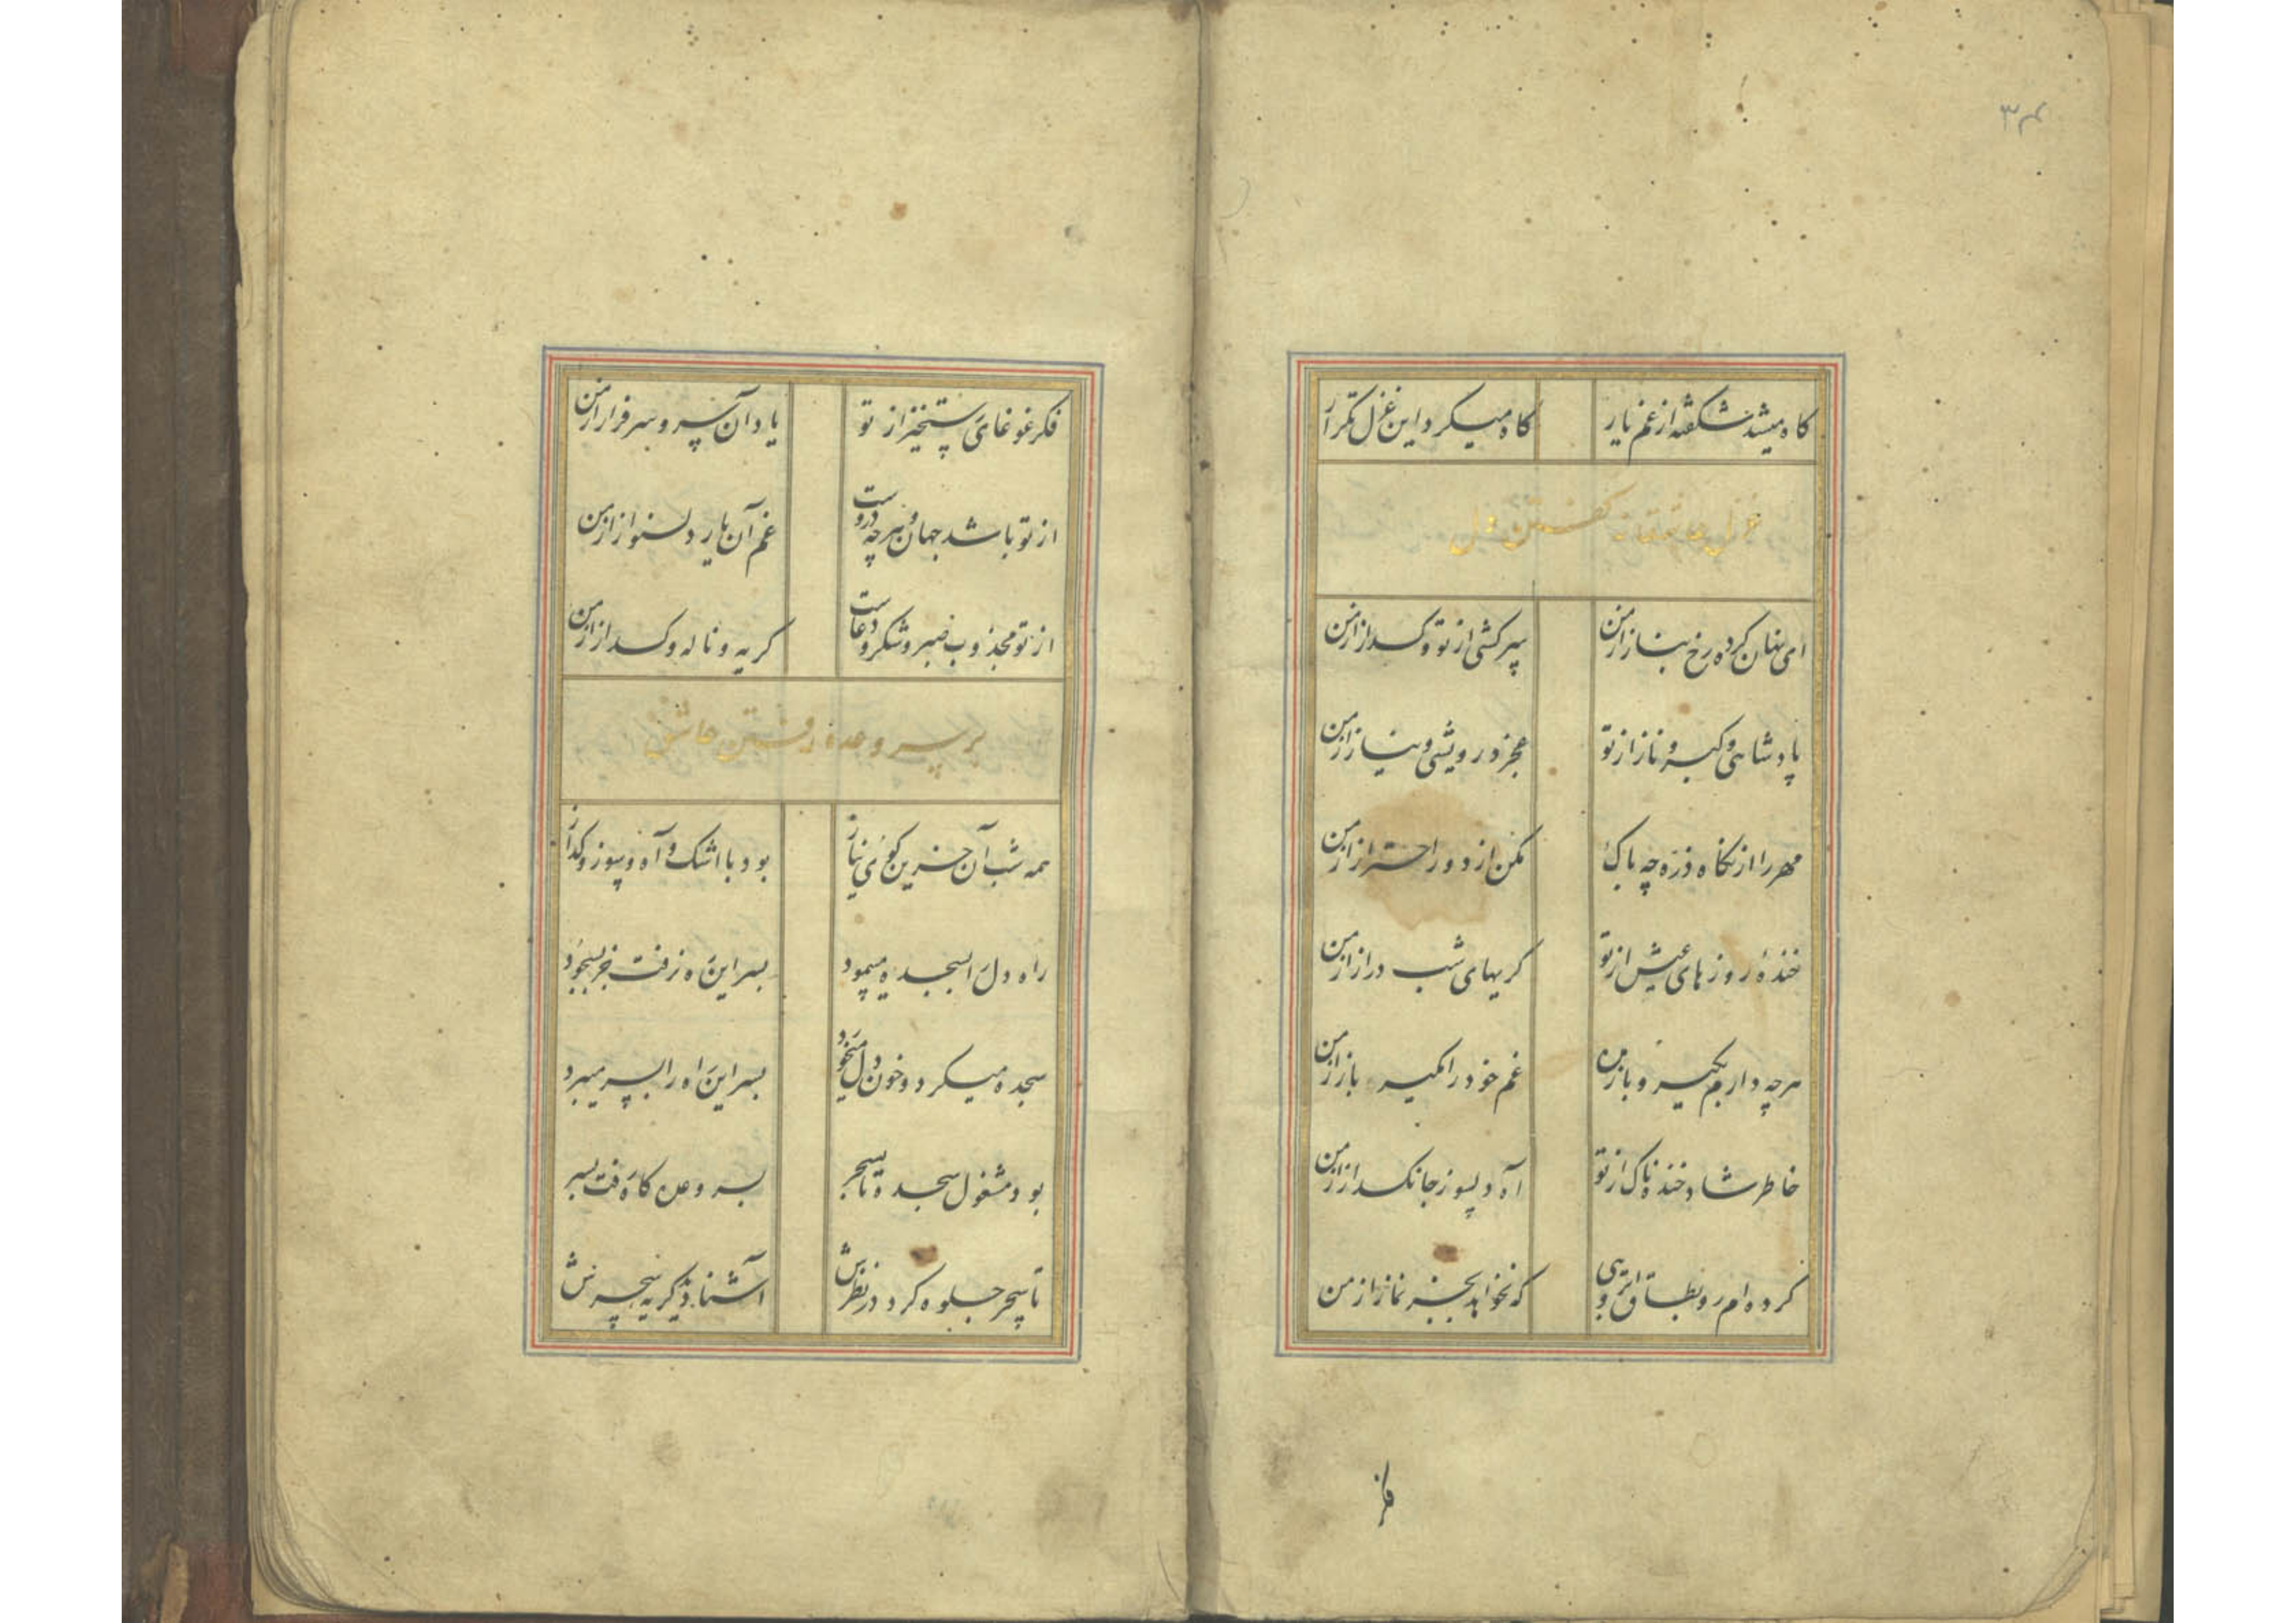 ۳۴
کاه میشد شکفته از غم یار کاه میکرد این غزل تکرار
غزل عاشقانه گفتن دل
ای نهان کرده رخ بناز از من سرکشی از تو و کداز از من
پادشاهی و کبر و ناز از تو عجز و درویشی و نیاز از من
مهر را از نکاه ذره چه باک مکن از دور احتراز از من
خنده روزهای عیش از تو کریهای شب دراز از من
هرچه دارم بکیر و باز مده غم خود را مکیر باز از من
خاطر شاد و خنده ناک از تو آه و سوز جانکداز از من
کرده ام رو بطاق ابروئی که نخواهد بجز نماز از من
فکر
فکر غوغای رستخیز از تو یاد آن سرو سرفراز از من
از تو باشد جهان و هرچه دروست غم آن یار دلنواز از من
از تو مجذوب صبر و شکر و دعاست کریه و ناله و کداز از من
بر سر وعده رفتن عاشق
همه شب آن حزین کوی نیاز بود با اشک و آه و سوز و کداز
راه دل را بسجده میپمود بسر این ره نرفت جز بسجود
سجده میکرد و خون دل میخورد بسر این راه را بسر میبرد
بود مشغول سجده تا بسحر بسر وعده کاه رفت بسر
تا سحر جلوه کرد در نظرش آشنا شد بکریه